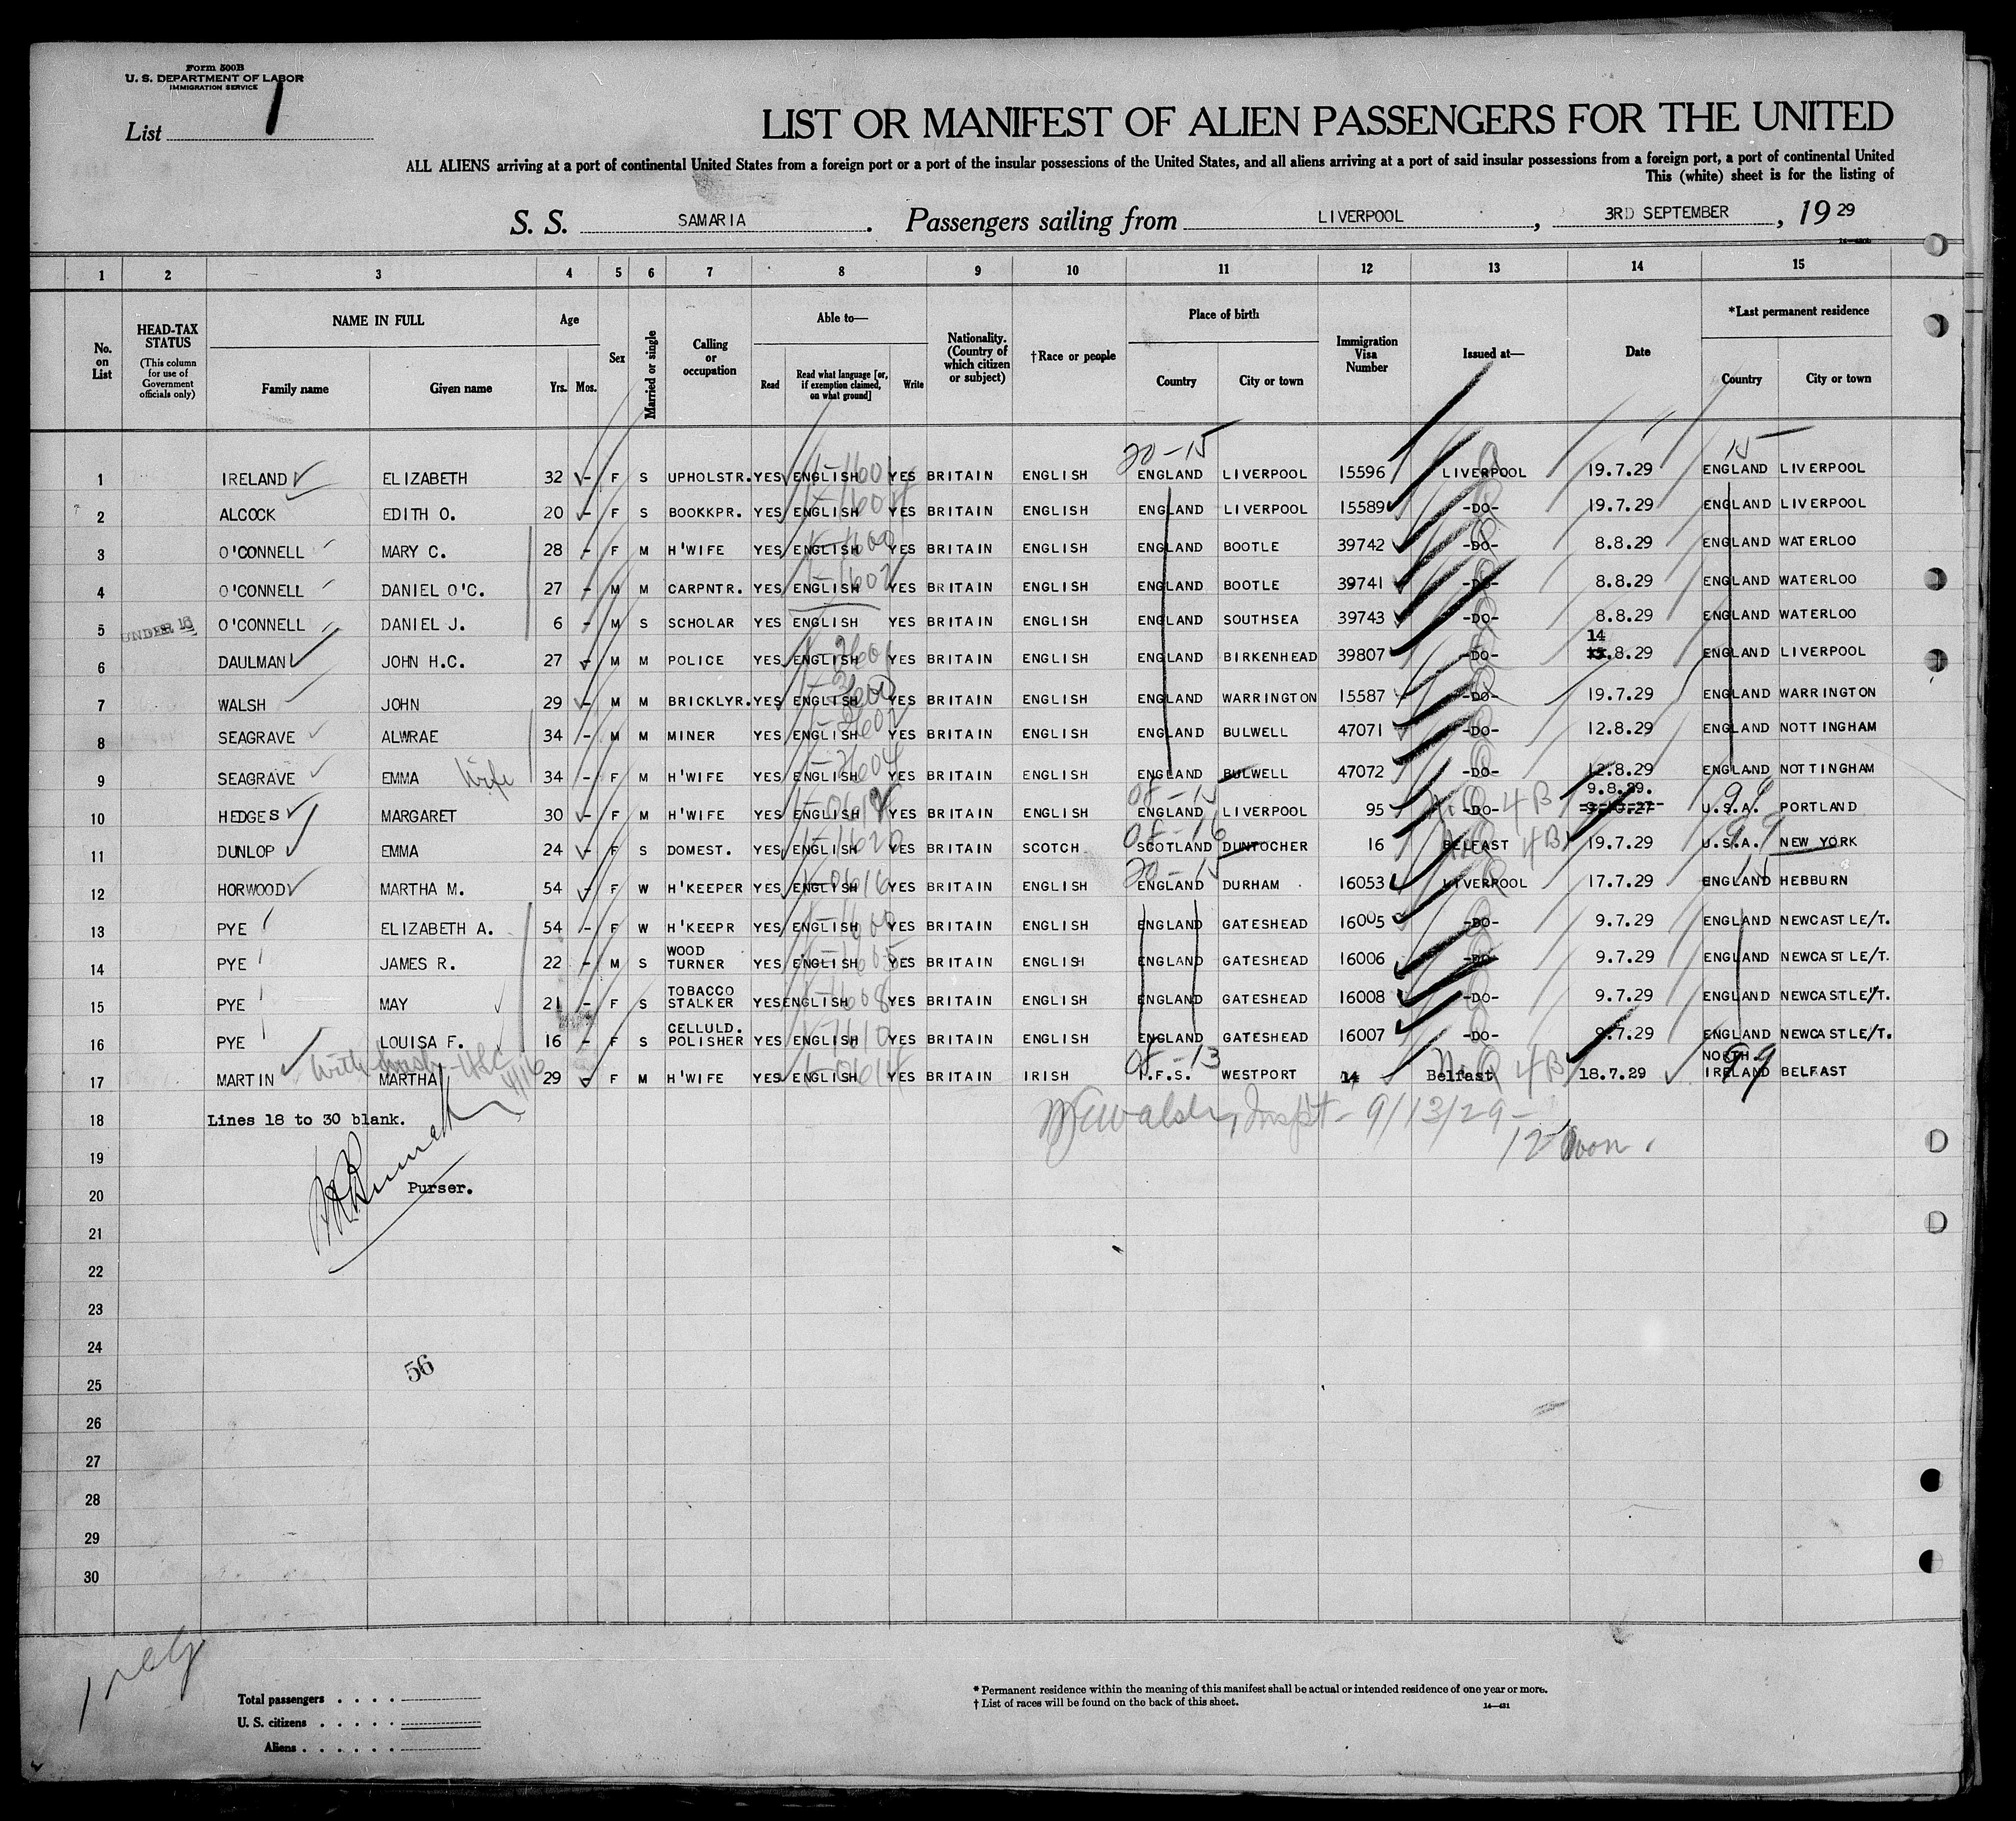 Form 500B
U. S. DEPARTMENT OF LABOR
IMMIGRATION SERVICE
List 1
LIST OR MANIFEST OF ALIEN PASSENGERS FOR THE UNITED
ALL ALIENS arriving at a port of continental United States from a foreign port or a port of the insular possessions of the United States, and all aliens arriving at a port of said insular possessions from a foreign port, a port of continental United
This (white) sheet is for the listing of
S. S. SAMARIA. Passengers sailing from LIVERPOOL, 3RD SEPTEMBER, 19 29
1 2 3 4 5 6 7 8 9 10 11 12 13 14 15
No. on List
HEAD-TAX STATUS
(This column for use of Government officials only)
NAME IN FULL
Family name Given name
Age
Yrs. Mos.
Sex
Married or single
Calling or occupation
Able to—
Read
Read what language [or, if exemption claimed, on what ground]
Write
Nationality. (Country of which citizen or subject)
†Race or people
Place of birth
Country City or town
Immigration Visa Number
Issued at—
Date
*Last permanent residence
Country City or town
20-15 15
1 IRELAND ELIZABETH 32 - F S UPHOLSTR. YES ENGLISH YES BRITAIN ENGLISH ENGLAND LIVERPOOL 15596 LIVERPOOL 19.7.29 ENGLAND LIVERPOOL
2 ALCOCK EDITH O. 20 - F S BOOKKPR. YES ENGLISH YES BRITAIN ENGLISH ENGLAND LIVERPOOL 15589 -DO- 19.7.29 ENGLAND LIVERPOOL
3 O'CONNELL MARY C. 28 - F M H'WIFE YES ENGLISH YES BRITAIN ENGLISH ENGLAND BOOTLE 39742 -DO- 8.8.29 ENGLAND WATERLOO
4 O'CONNELL DANIEL O'C. 27 - M M CARPNTR. YES ENGLISH YES BRITAIN ENGLISH ENGLAND BOOTLE 39741 -DO- 8.8.29 ENGLAND WATERLOO
5 UNDER 16 O'CONNELL DANIEL J. 6 - M S SCHOLAR YES ENGLISH YES BRITAIN ENGLISH ENGLAND SOUTHSEA 39743 -DO- 8.8.29 ENGLAND WATERLOO
6 DAULMAN JOHN H.C. 27 - M M POLICE YES ENGLISH YES BRITAIN ENGLISH ENGLAND BIRKENHEAD 39807 -DO- 14.8.29 ENGLAND LIVERPOOL
7 WALSH JOHN 29 - M M BRICKLYR. YES ENGLISH YES BRITAIN ENGLISH ENGLAND WARRINGTON 15587 -DO- 19.7.29 ENGLAND WARRINGTON
8 SEAGRAVE ALWRAE 34 - M M MINER YES ENGLISH YES BRITAIN ENGLISH ENGLAND BULWELL 47071 -DO- 12.8.29 ENGLAND NOTTINGHAM
9 SEAGRAVE EMMA Wife 34 - F M H'WIFE YES ENGLISH YES BRITAIN ENGLISH ENGLAND BULWELL 47072 -DO- 12.8.29 ENGLAND NOTTINGHAM
08-15 9.8.29. 99
10 HEDGES MARGARET 30 - F M H'WIFE YES ENGLISH YES BRITAIN ENGLISH ENGLAND LIVERPOOL 95 -DO- 4B U.S.A. PORTLAND
08-16 99
11 DUNLOP EMMA 24 - F S DOMEST. YES ENGLISH YES BRITAIN SCOTCH SCOTLAND DUNTOCHER 16 BELFAST 4B 19.7.29 U.S.A. NEW YORK
20-15
12 HORWOOD MARTHA M. 54 - F W H'KEEPER YES ENGLISH YES BRITAIN ENGLISH ENGLAND DURHAM 16053 LIVERPOOL 17.7.29 ENGLAND HEBBURN
13 PYE ELIZABETH A. 54 - F W H'KEEPR YES ENGLISH YES BRITAIN ENGLISH ENGLAND GATESHEAD 16005 -DO- 9.7.29 ENGLAND NEWCASTLE/T.
14 PYE JAMES R. 22 - M S WOOD TURNER YES ENGLISH YES BRITAIN ENGLISH ENGLAND GATESHEAD 16006 -DO- 9.7.29 ENGLAND NEWCASTLE/T.
15 PYE MAY 21 - F S TOBACCO STALKER YES ENGLISH YES BRITAIN ENGLISH ENGLAND GATESHEAD 16008 -DO- 9.7.29 ENGLAND NEWCASTLE/T.
16 PYE LOUISA F. 16 - F S CELLULD. POLISHER YES ENGLISH YES BRITAIN ENGLISH ENGLAND GATESHEAD 16007 -DO- 9.7.29 ENGLAND NEWCASTLE/T.
08-13 99
17 MARTIN MARTHA 29 - F M H'WIFE YES ENGLISH YES BRITAIN IRISH I.F.S. WESTPORT 14 Belfast 4B 18.7.29 NORTH. IRELAND BELFAST
18 Lines 18 to 30 blank.
9/13/29
12 Noon.
19
20 Purser.
21
22
23
24
56
25
26
27
28
29
30
Total passengers
U. S. citizens
Aliens
* Permanent residence within the meaning of this manifest shall be actual or intended residence of one year or more.
† List of races will be found on the back of this sheet.
14—431